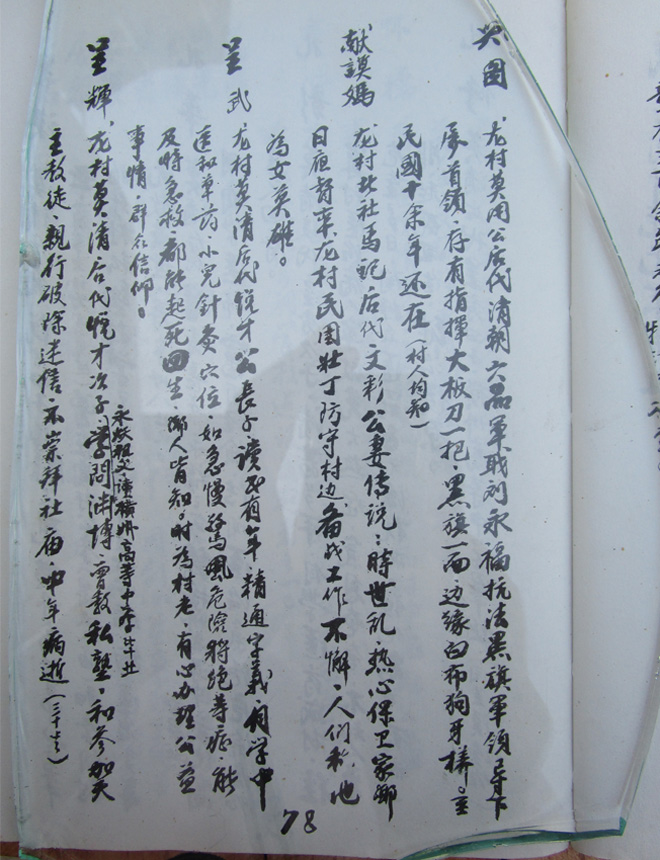 兴国
龙村莫闭公后代清朝六品军职刘永福抗法黑旗军领导下
属首领·存有指揮大板刀一把·黑旗一面·边缘白布狗牙·至
民國十余年还在（村人均知）
献謨媽
龙村北社馬記后代文彩公妻传说：時世乱·热心保卫家鄉
日夜督率龙村民团壮丁防守村边备战工作不懈·人们称他
为女英雄。
呈武
龙村莫清后代悦才公長子·讀书有年精通字義·自学中
医和草药·小兒針灸穴位·如急慢驚風危險将绝等症·能
及時急救·都能起死回生·鄉人皆知。时為村老·有心办理公益
事情·群众信仰。
呈輝
龙村莫清后代悦才次子學問渊博·曾教私塾·和参加天
永跃祖父讀橫州高等中学毕业
主教徒·親行破除迷信·不崇拜社庙·中年病逝（三十七）
78